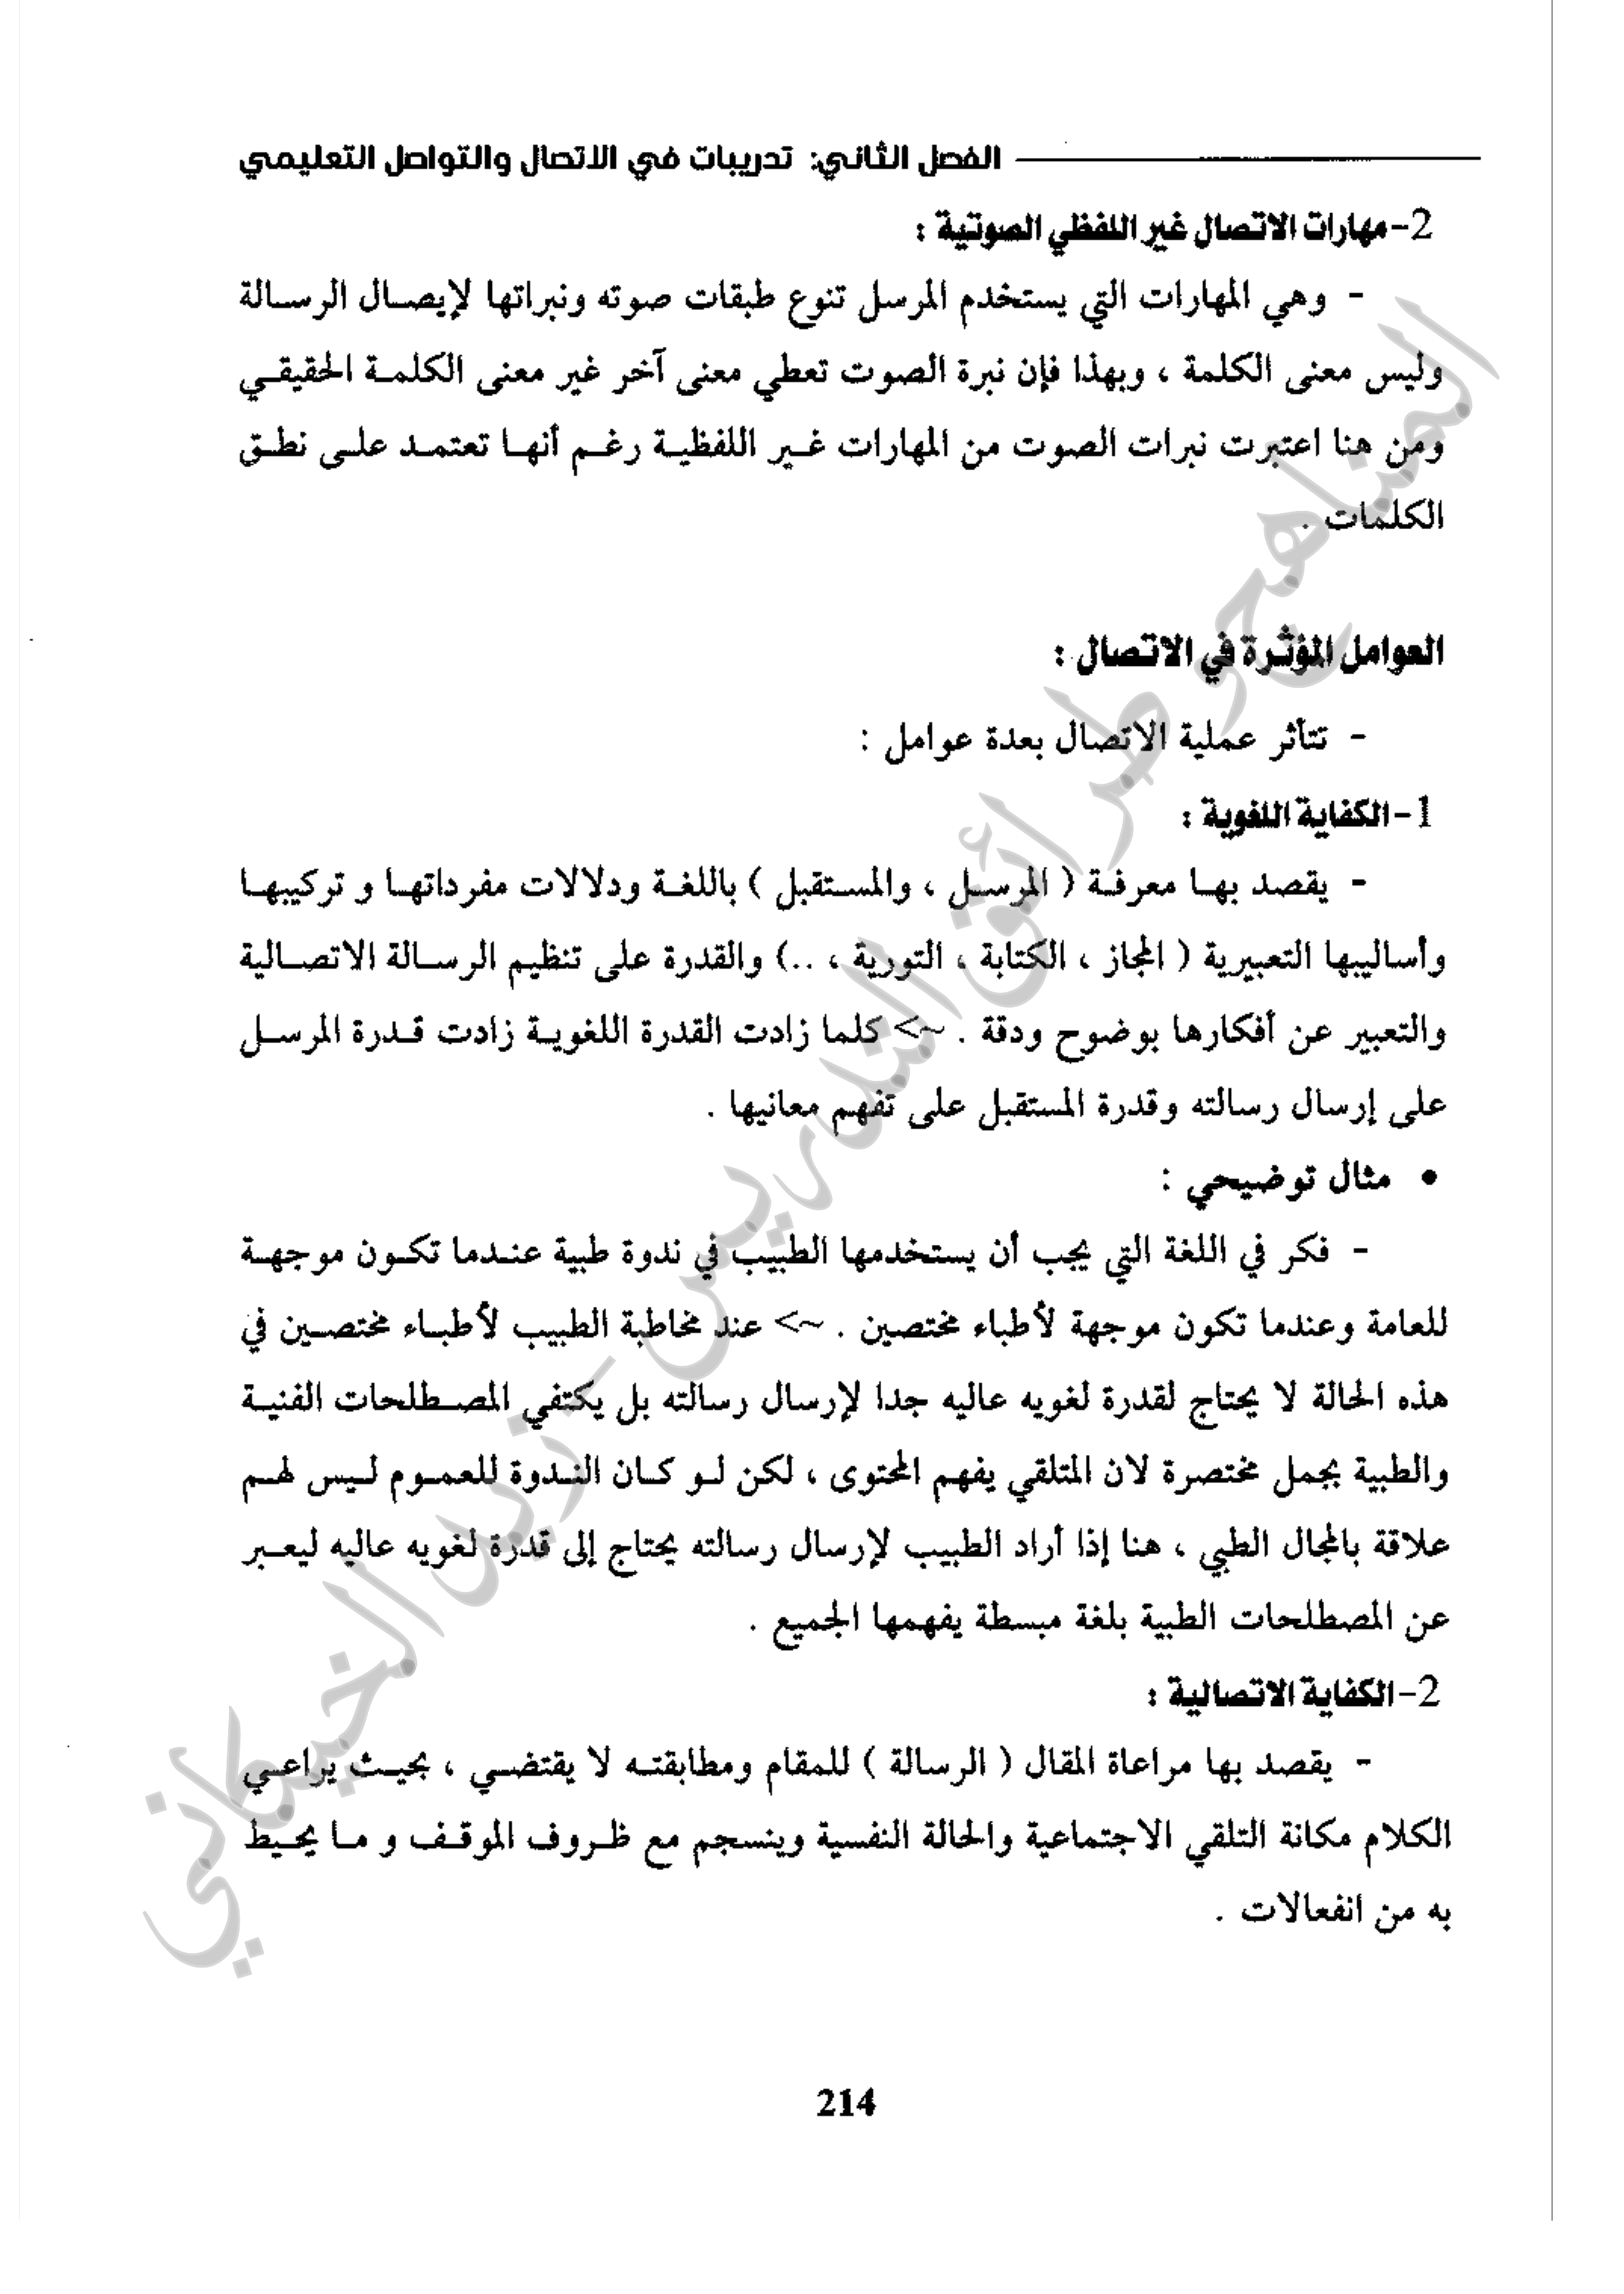 الفصل الثاني: تدريبات في الاتصال والتواصل التعليمي
2-مهارات الاتصال غير اللفظي الصوتية :
- وهي المهارات التي يستخدم المرسل تنوع طبقات صوته ونبراتها لإيصال الرسالة
وليس معنى الكلمة ، وبهذا فإن نبرة الصوت تعطي معنى آخر غير معنى الكلمة الحقيقي
ومن هنا اعتبرت نبرات الصوت من المهارات غير اللفظية رغم أنها تعتمد على نطق
الكلمات .
العوامل المؤثرة في الاتصال :
- تتأثر عملية الاتصال بعدة عوامل :
1-الكفاية اللغوية :
- يقصد بها معرفة ( المرسل ، والمستقبل ) باللغة ودلالات مفرداتها و تركيبها
وأساليبها التعبيرية ( المجاز ، الكتابة ، التورية ، ..) والقدرة على تنظيم الرسالة الاتصالية
والتعبير عن أفكارها بوضوح ودقة . ~> كلما زادت القدرة اللغوية زادت قدرة المرسل
على إرسال رسالته وقدرة المستقبل على تفهم معانيها .
• مثال توضيحي :
- فكر في اللغة التي يجب أن يستخدمها الطبيب في ندوة طبية عندما تكون موجهة
للعامة وعندما تكون موجهة لأطباء مختصين . ~> عند مخاطبة الطبيب لأطباء مختصين في
هذه الحالة لا يحتاج لقدرة لغويه عاليه جدا لإرسال رسالته بل يكتفي المصطلحات الفنية
والطبية بجمل مختصرة لان المتلقي يفهم المحتوى ، لكن لو كان الندوة للعموم ليس لهم
علاقة بالمجال الطبي ، هنا إذا أراد الطبيب لإرسال رسالته يحتاج إلى قدرة لغويه عاليه ليعبر
عن المصطلحات الطبية بلغة مبسطة يفهمها الجميع .
2-الكفاية الاتصالية :
- يقصد بها مراعاة المقال ( الرسالة ) للمقام ومطابقته لا يقتضي ، بحيث يراعي
الكلام مكانة التلقي الاجتماعية والحالة النفسية وينسجم مع ظروف الموقف و ما يحيط
به من انفعالات .
214
المناهج و طرائق التدريس - زيد الخيكاني